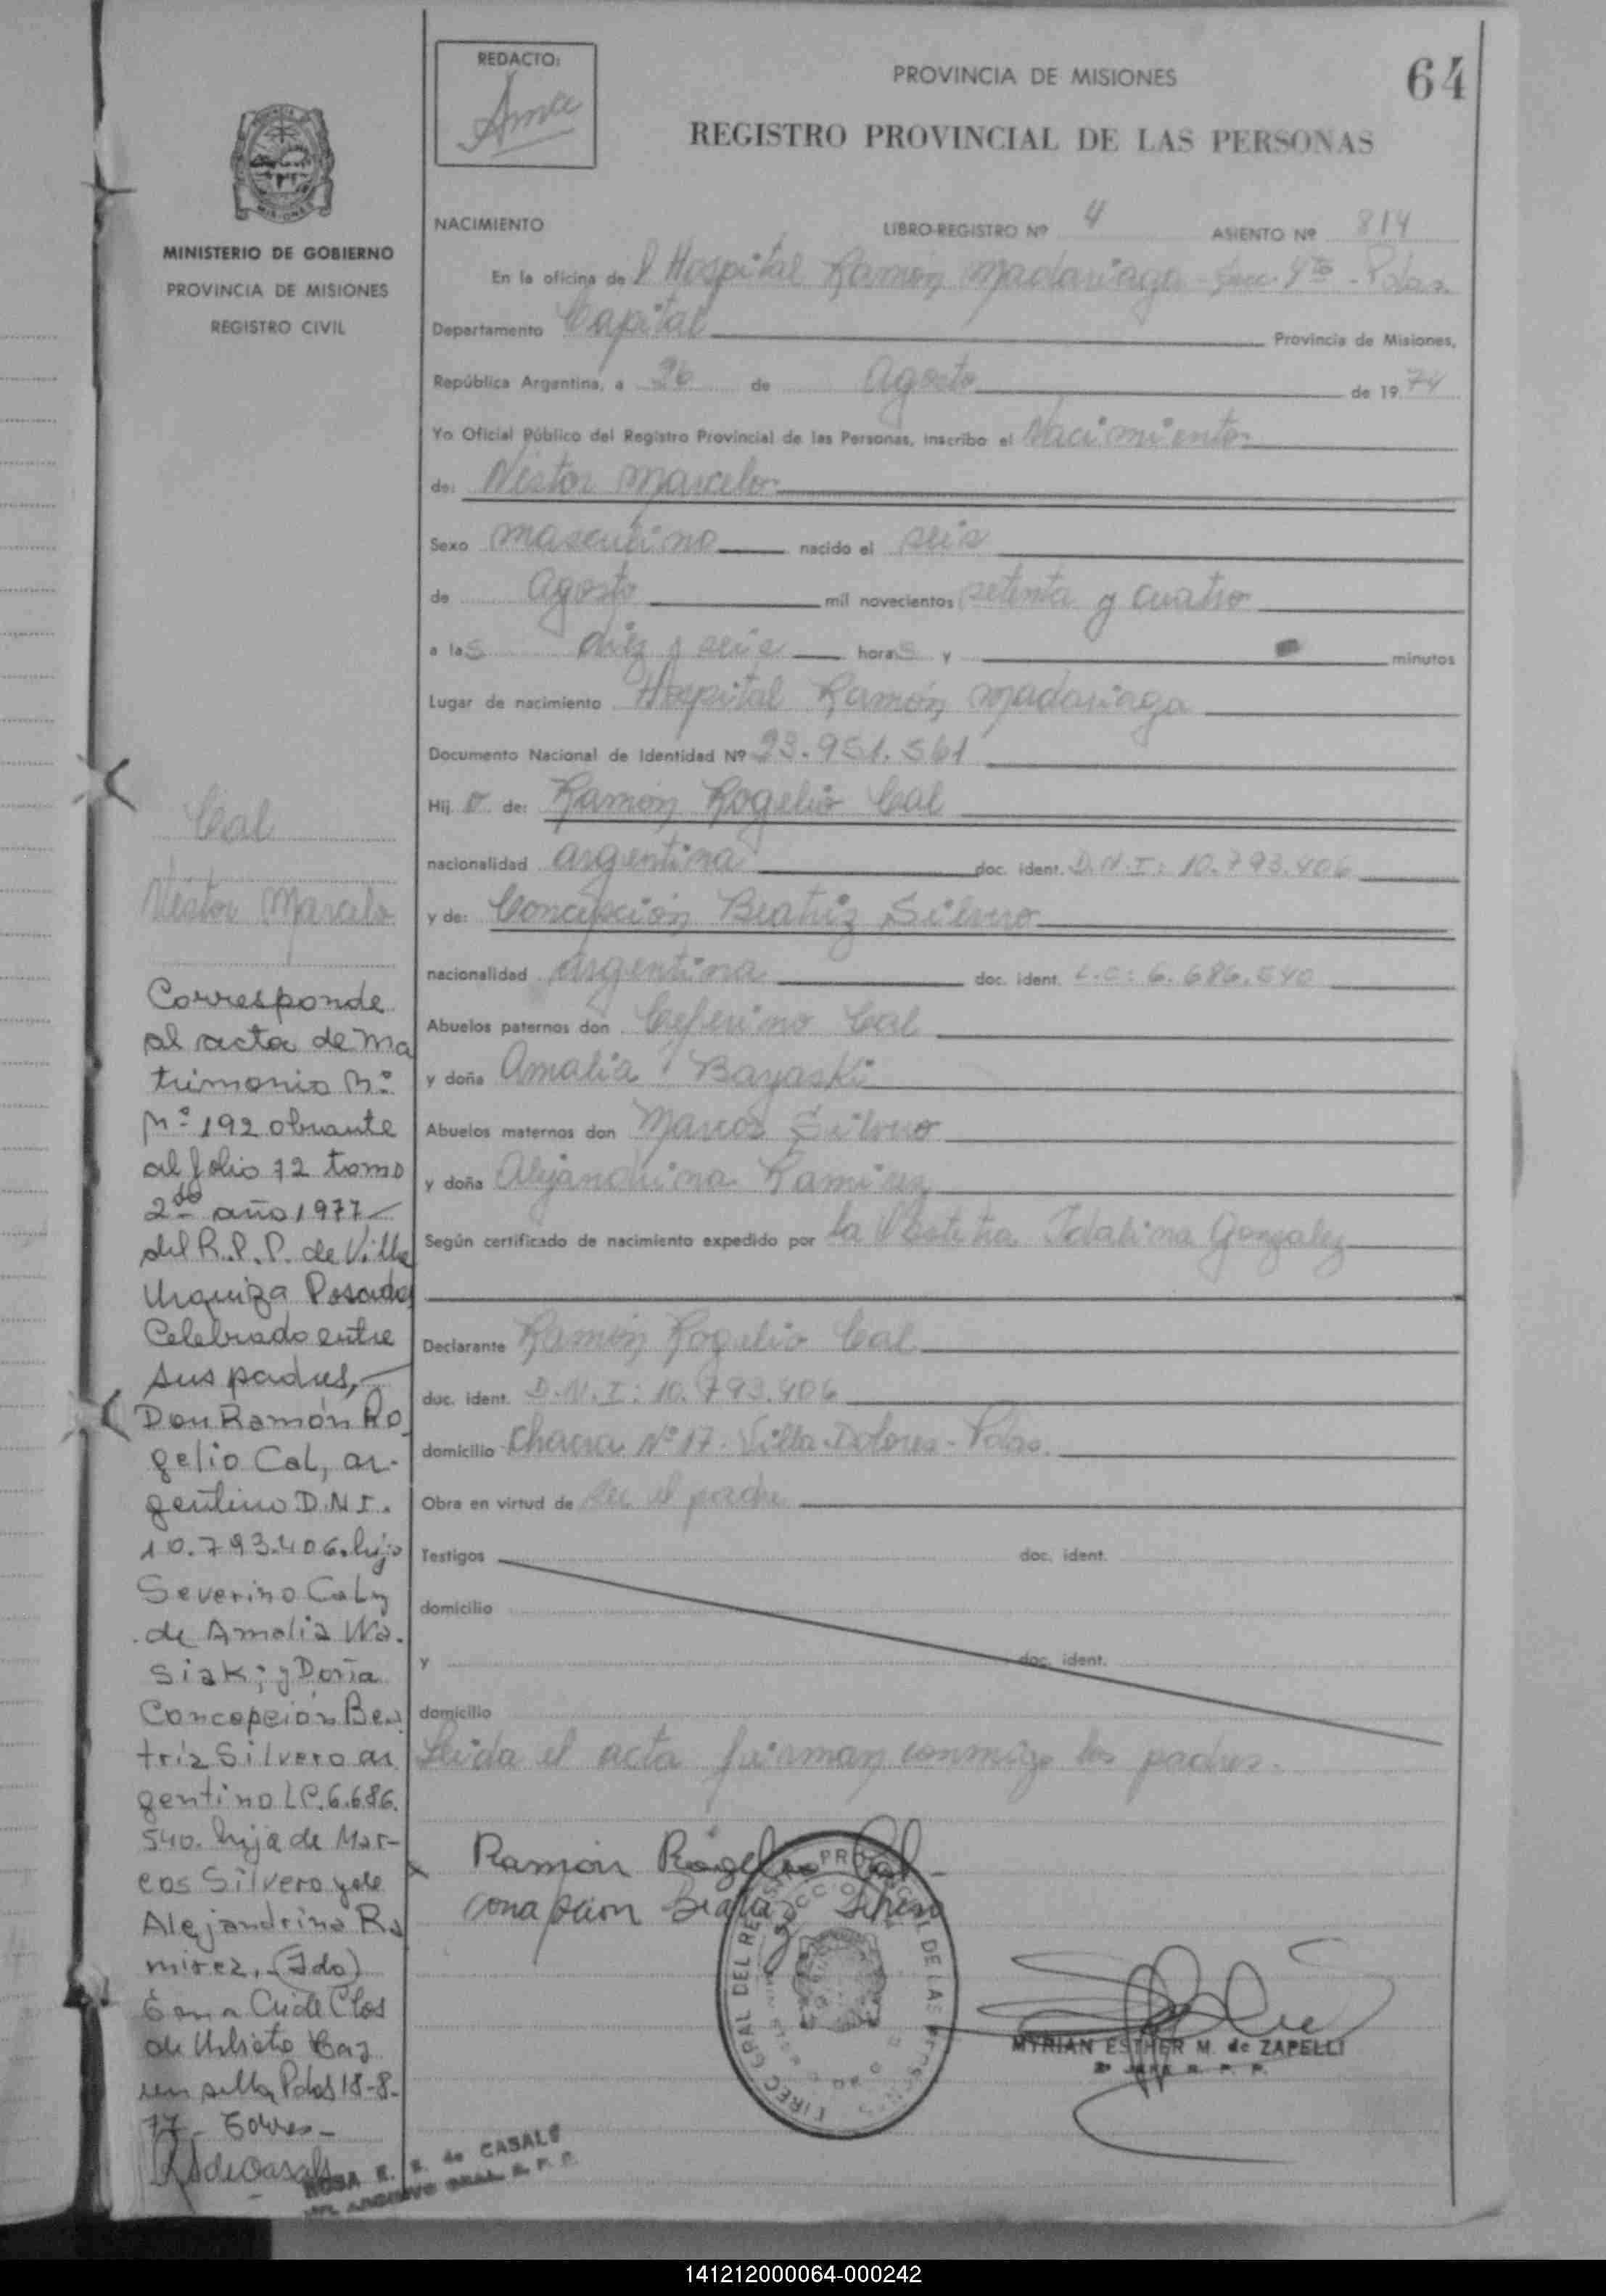 REDACTO:
PROVINCIA DE MISIONES
64
REGISTRO PROVINCIAL DE LAS PERSONAS
MISIONES
MINISTERIO DE GOBIERNO
PROVINCIA DE MISIONES
REGISTRO CIVIL
NACIMIENTO LIBRO-REGISTRO Nº 4 ASIENTO Nº 814
En la oficina de l Hospital Ramón Madariaga - Secc. 4ta - Pdas.
Departamento Capital Provincia de Misiones,
República Argentina, a 26 de agosto de 1974
Yo Oficial Público del Registro Provincial de las Personas, inscribo el Nacimiento
de: Néstor Marcelo
Sexo masculino nacido el seis
de agosto mil novecientos setenta y cuatro
a las diez y seis horas y minutos
Lugar de nacimiento Hospital Ramón Madariaga
Documento Nacional de Identidad Nº 23.951.561
Hij o de: Ramón Rogelio Cal
nacionalidad argentina doc. ident. D.N.I: 10.793.406
y de: Concepción Beatriz Silvero
nacionalidad argentina doc. ident. L.C: 6.686.540
Abuelos paternos don Ceferino Cal
y doña Amalia Bayaski
Abuelos maternos don Marcos Silvero
y doña Alejandrina Ramirez
Según certificado de nacimiento expedido por la Idalina Gonzalez
Declarante Ramón Rogelio Cal
doc. ident. D.N.I: 10.793.406
domicilio Chacra Nº 17 - Villa Dolores - Pdas.
Obra en virtud de ser el padre
Testigos doc. ident.
domicilio
y doc. ident.
domicilio
Leida el acta firman conmigo los padres.
Ramón Rogelio Cal
Concepcion Beatriz Silvero
MYRIAN ESTHER M. de ZAPELLI
2º JEFE R. P. P.
Cal
Néstor Marcelo
Corresponde
al acta de ma
trimonio Nº
Nº 192 obrante
al folio 72 tomo
2do año 1977
del R.P.P. de Villa
Urquiza Posadas
Celebrado entre
sus padres,
Don Ramón Ro
gelio Cal, ar-
gentino D.N.I.
10.793.406. hijo
Severino Cal y
de Amalia Wa.
siak; y Doña
Concepción Bea
triz Silvero ar
gentino LC.6.686.
540. hija de Mar-
cos Silvero y de
Alejandrina Ra
mirez. (Fdo)
de
un sello Pdas 18-8-
77
ROSA E. de CASALS
ARCHIVO GRAL. R. P. P.
141212000064-000242